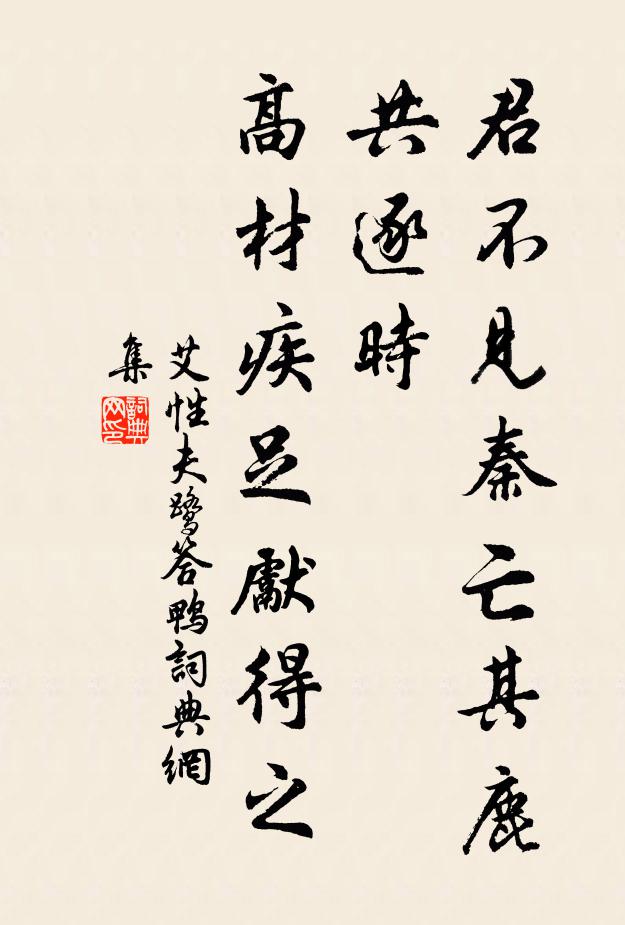 君不見秦亡其鹿
共逐時
高材疾足獻得之
艾性夫鷺答鴨詞典網
集
詞典
网印